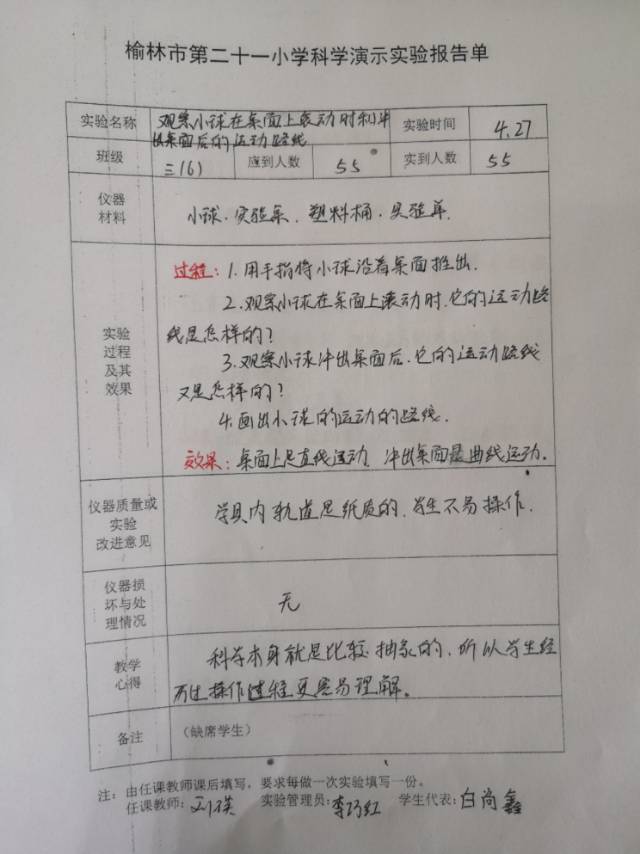 榆林市第二十一小学科学演示实验报告单
实验名称 观察小球在桌面上滚动时和冲 实验时间 4.27
出桌面后的运动路线
班级 三(6) 应到人数 55 实到人数 55
仪器
材料
小球.实验桌.塑料桶.实验单.
实验
过程
及其
效果
过程:1.用手指将小球沿着桌面推出.
2.观察小球在桌面上滚动时.它的运动路
线是怎样的?
3.观察小球冲出桌面后.它的运动路线
又是怎样的?
4.画出小球的运动的路线.
效果:桌面上是直线运动.冲出桌面是曲线运动.
仪器质量或
实验
改进意见
学具内轨道是纸质的.学生不易操作.
仪器损
坏与处
理情况
无
教学
心得
科学本身就是比较抽象的,所以学生经
历操作过程更容易理解。
备注 (缺席学生)
注:由任课教师课后填写,要求每做一次实验填写一份。
任课教师:刘 实验管理员:李巧红 学生代表:白尚鑫